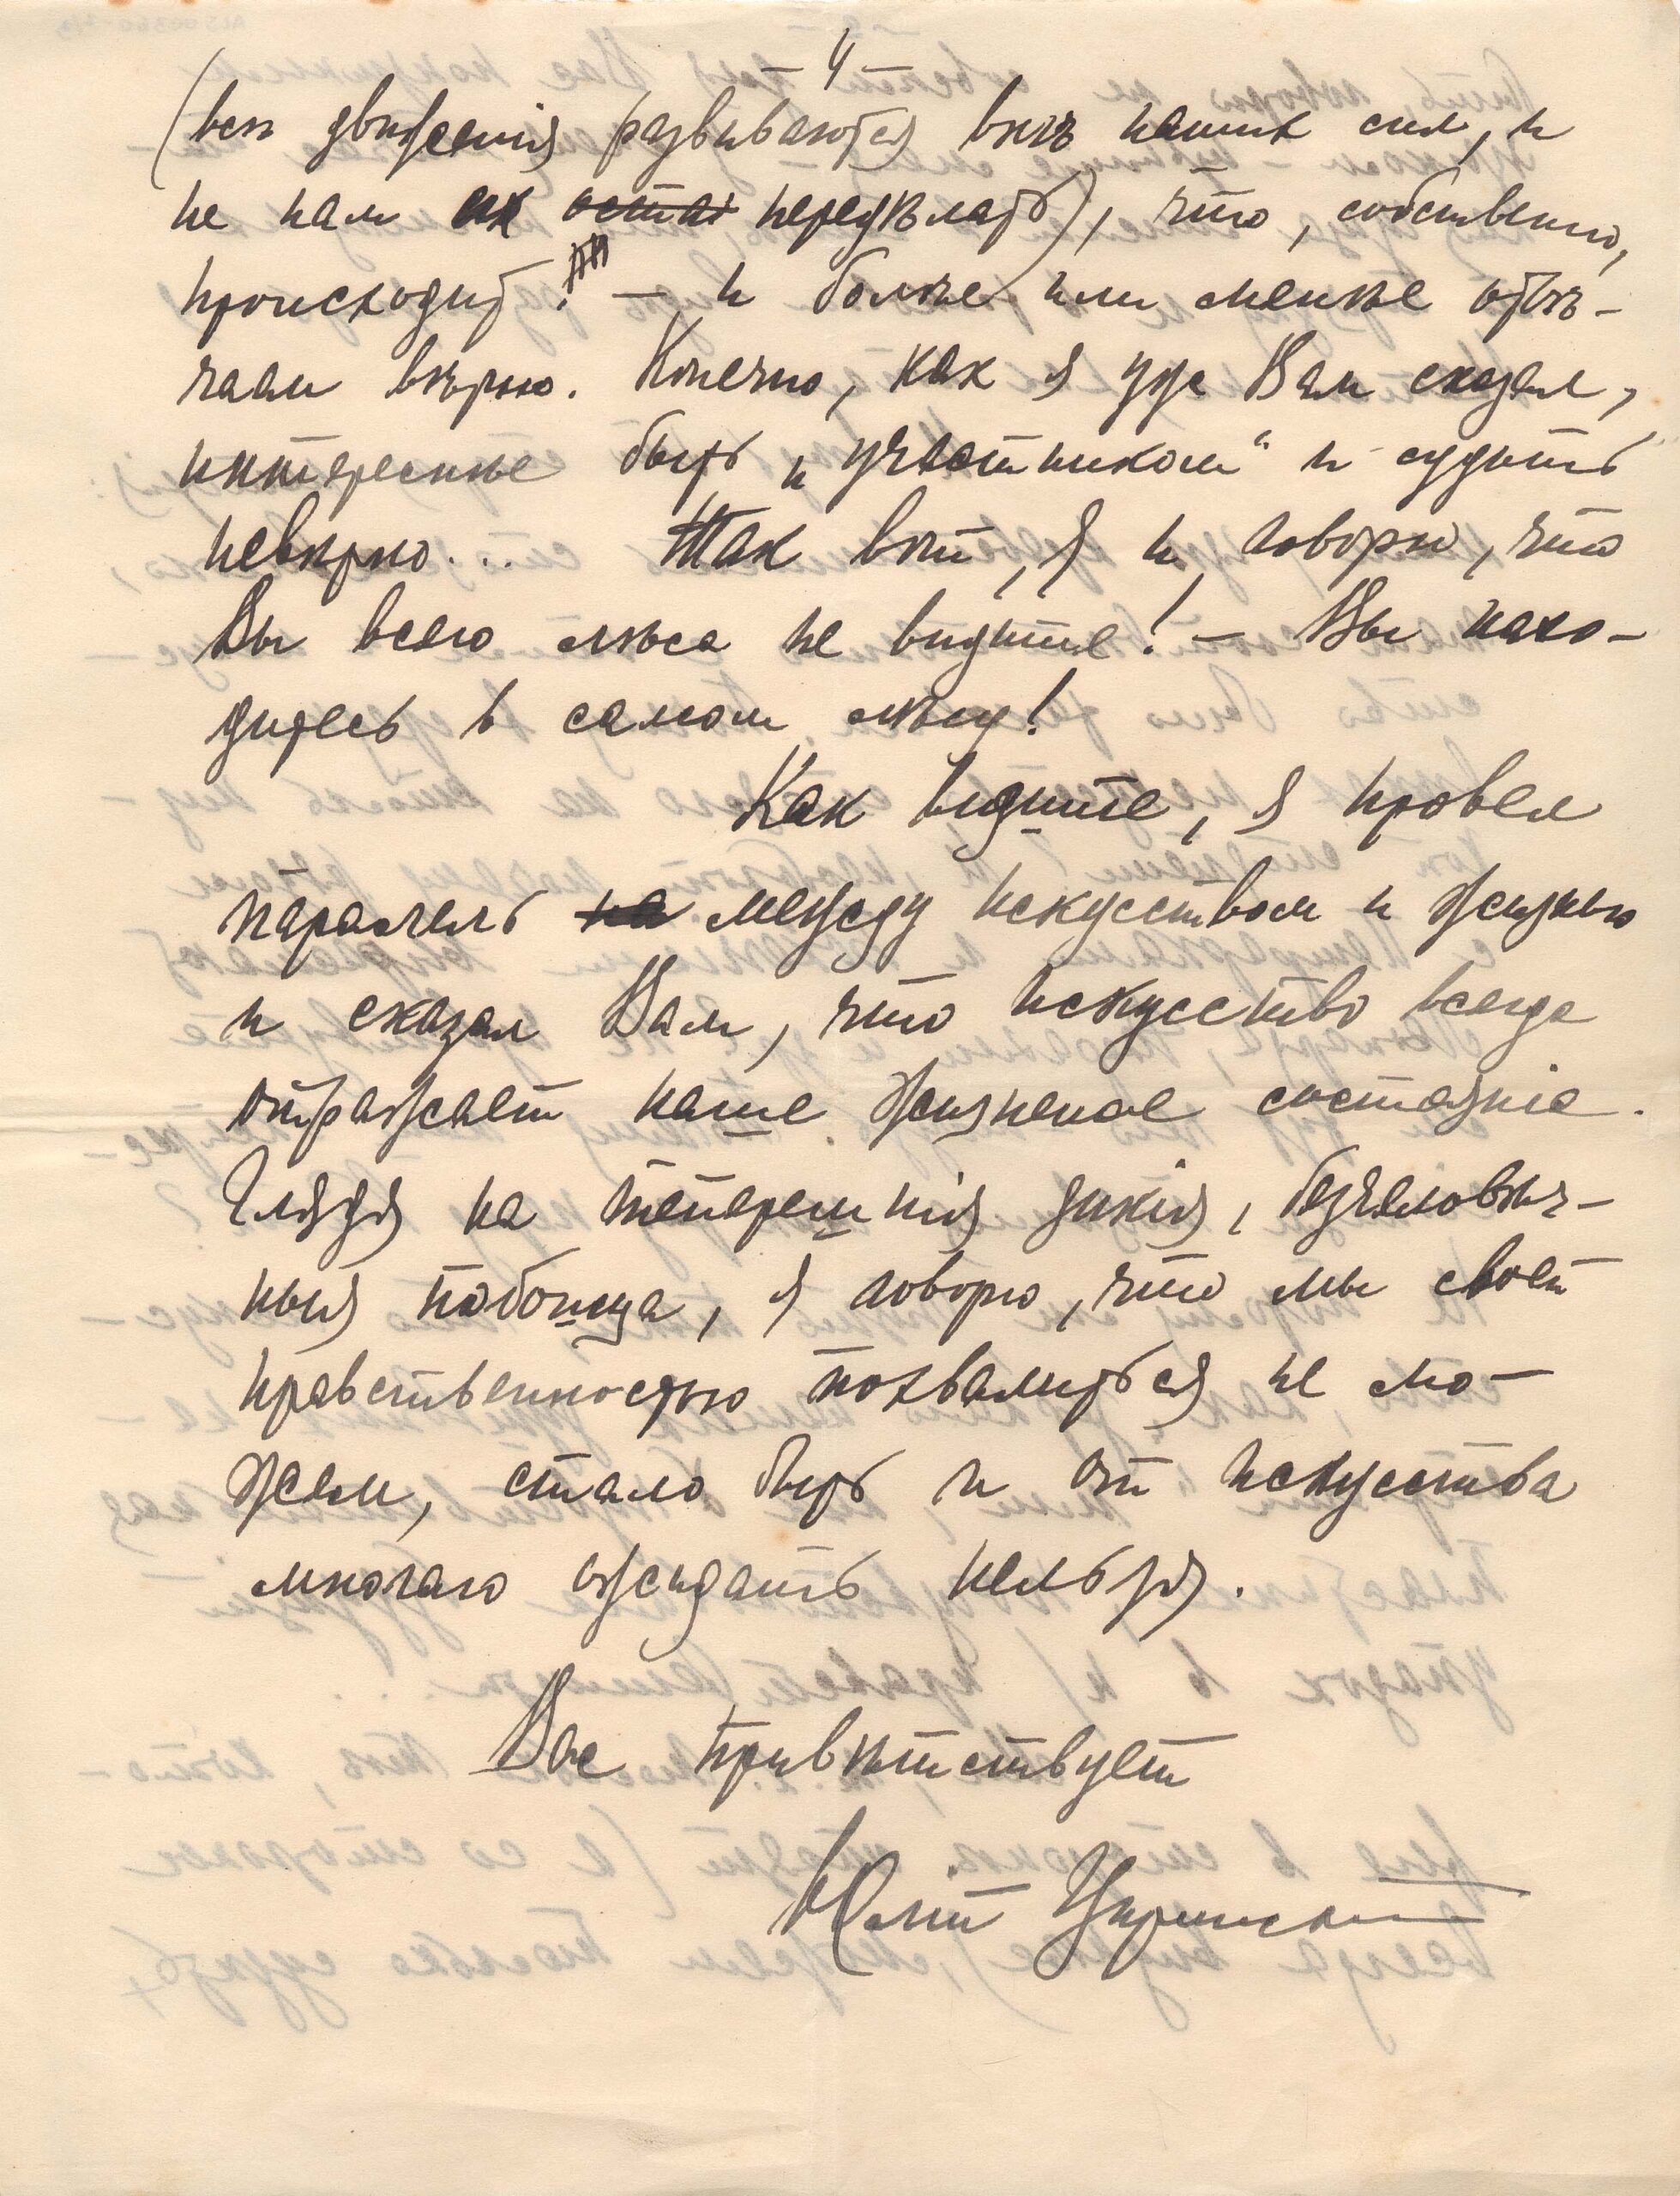 — 4 —
(всѣ движенія развиваются внѣ наших сил, и
не нам их остан передѣлать), что, собственно,
происходит? — и более или менѣе отвѣ-
чали вѣрно. Конечно, как я уже Вам сказал,
интереснѣе быть „участником“ и судить
невѣрно... Так вот, я и говорю, что
Вы всего лѣса не видите! — Вы нахо-
дитесь в самом лѣсу!
Как видите, я провел
паралель на между искусством и жизнью
и сказал Вам, что искусство всегда
отражает наше жизненое состояніе.
Глядя на теперешнія дикія, безчеловѣч-
ныя побоища, я говорю, что мы своей
нравственностью похвалиться не мо-
жем, стало быть и от искусства
многаго ожидать нельзя.
Вас привѣтствует
Юлій